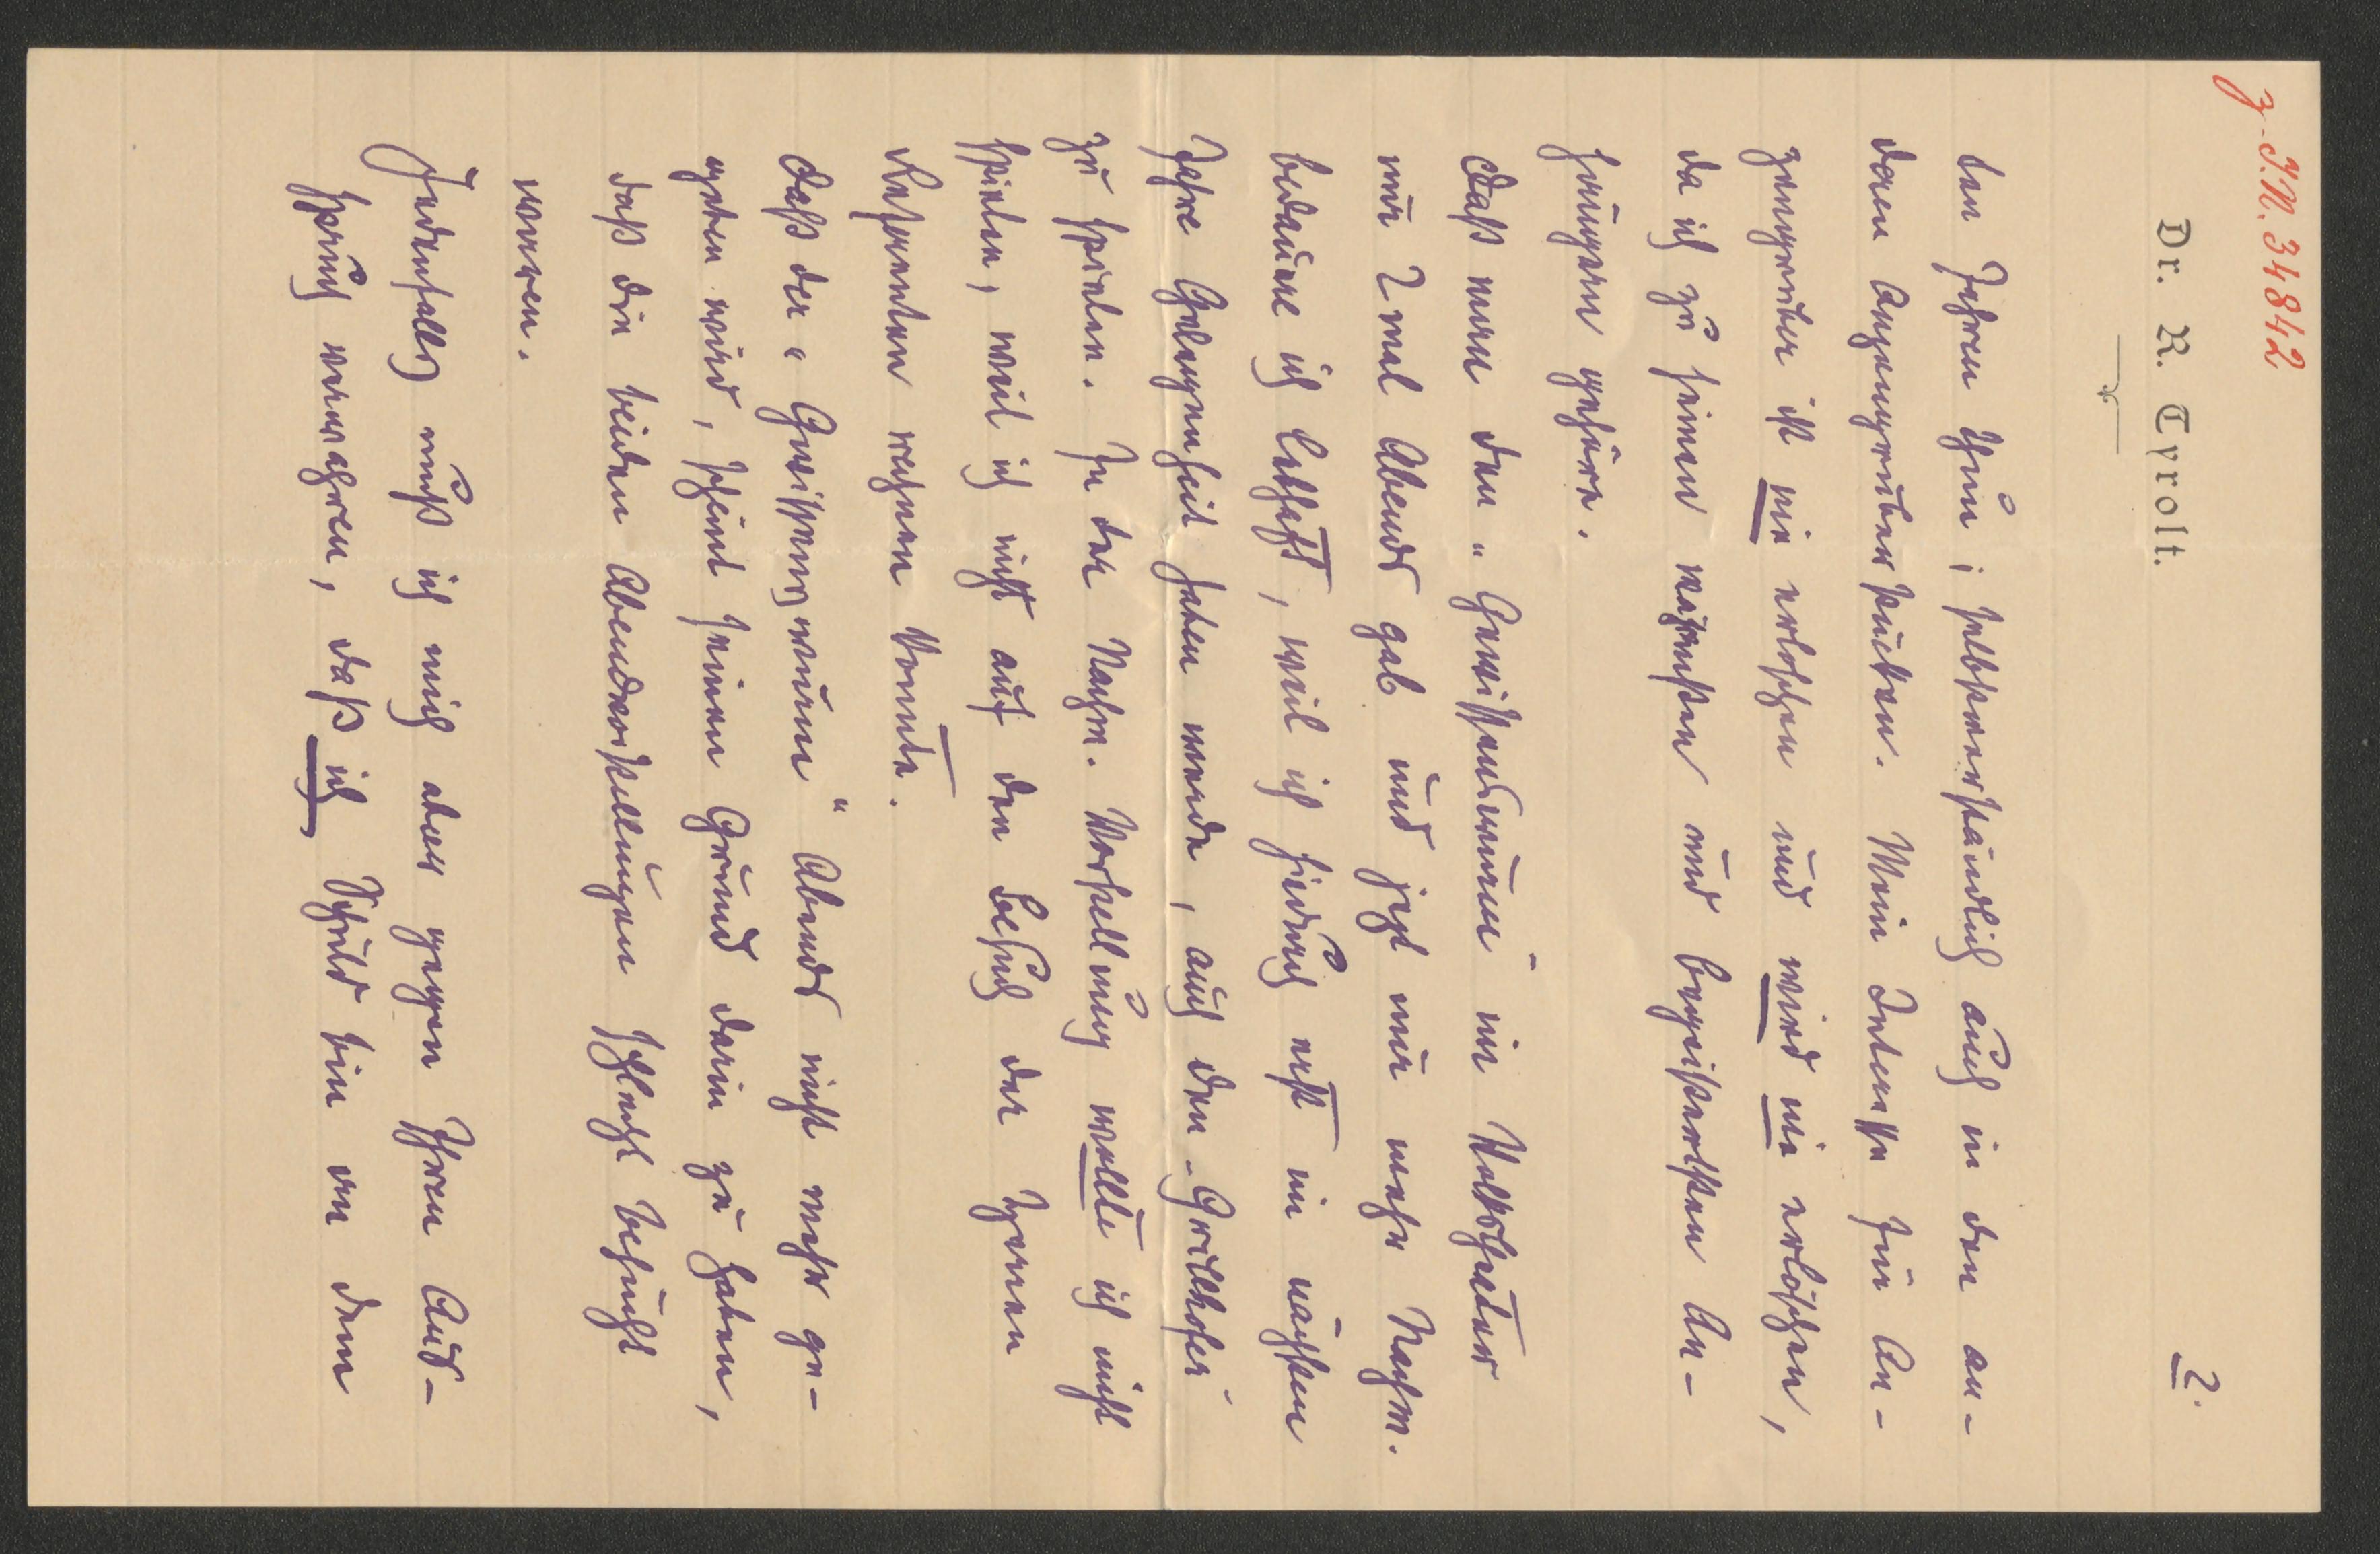 z. I.N. 34842
Dr. R. Tyrolt.
2.
ten Jahren thun; selbstverständlich auch in den an-
deren Anzengruberstücken. Mein Interesse für An-
zengruber ist nie erloschen und wird nie erlöschen,
da ich zu seinen wärmsten und begeistertsten An-
hängern gehöre.
Daß man den „Gewissenswurm" im Volkstheater
nur 2 mal Abends gab und jetzt nur mehr Nachm.
bedauere ich lebhaft, weil ich hiedurch erst im nächsten
Jahre Gelegenheit haben werde, auch den „Grillhofer"
zu spielen. In der Nachm. Vorstellung wollte ich nicht
spielen, weil ich nicht auf den Besuch der Herren
Referenten rechnen konnte.
Daß der „Gwissenswurm" Abends nicht mehr ge-
geben wird, scheint seinen Grund darin zu haben,
daß die beiden Abendvorstellungen schlecht besucht
waren.
Jedenfalls muß ich mich aber gegen Ihren Aus-
spruch verwahren, daß ich Schuld bin an dem